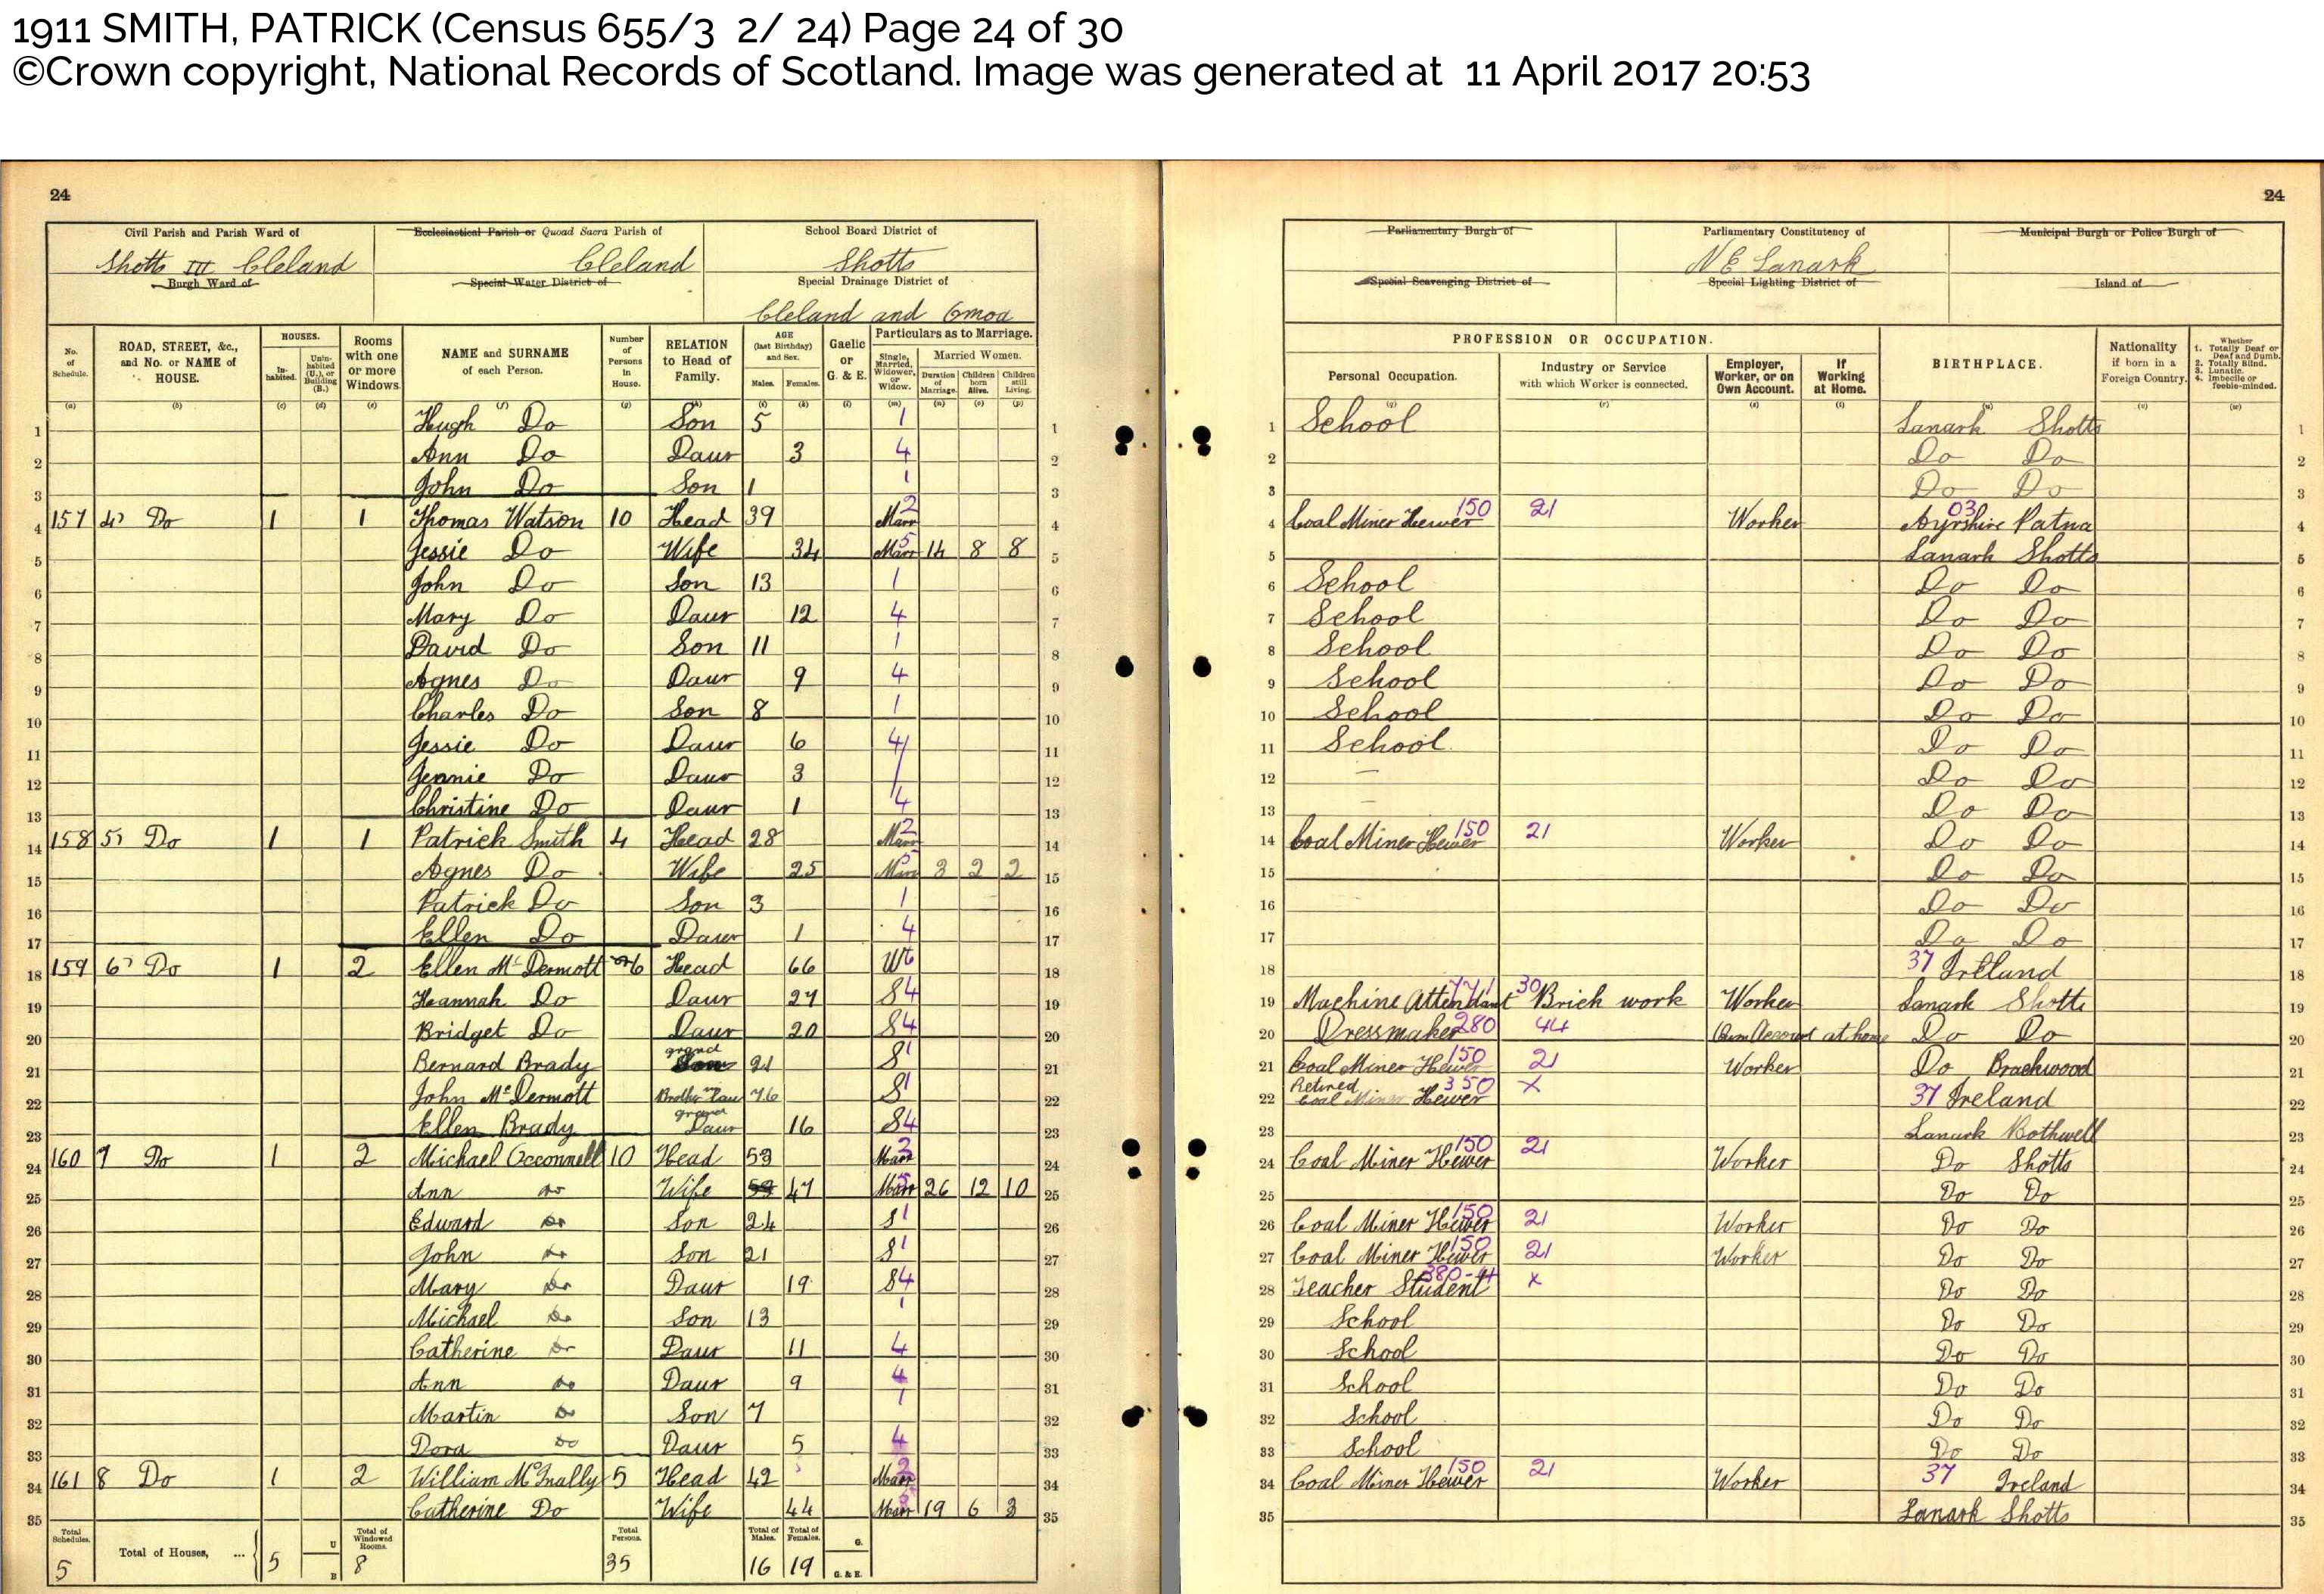 1911 SMITH, PATRICK (Census 655/3 2/ 24) Page 24 of 30
©Crown copyright, National Records of Scotland. Image was generated at 11 April 2017 20:53
24
Civil Parish and Parish Ward of
Shotts III Cleland
Burgh Ward of
Ecclesiastical Parish or Quoad Sacra Parish of
Cleland
Special Water District of
School Board District of
Shotts
Special Drainage District of
Cleland and Omoa
No. of Schedule. ROAD, STREET, &c., and No. or NAME of HOUSE. HOUSES. Inhabited. Uninhabited (U.), or Building (B.) Rooms with one or more Windows. NAME and SURNAME of each Person. Number of Persons in House. RELATION to Head of Family. AGE (last Birthday) and Sex. Males. Females. Gaelic or G. & E. Particulars as to Marriage. Single, Married, Widower, or Widow. Married Women. Duration of Marriage. Children born Alive. Children still Living.
(a) (b) (c) (d) (e) (f) (g) (h) (i) (k) (l) (m) (n) (o) (p)
1 Hugh Do Son 5 1 1
2 Ann Do Daur 3 4 2
3 John Do Son 1 1 3
4 157 4, Do 1 1 Thomas Watson 10 Head 39 Marr 2 4
5 Jessie Do Wife 34 Marr 5 14 8 8 5
6 John Do Son 13 1 6
7 Mary Do Daur 12 4 7
8 David Do Son 11 1 8
9 Agnes Do Daur 9 4 9
10 Charles Do Son 8 1 10
11 Jessie Do Daur 6 4 11
12 Jennie Do Daur 3 12
13 Christine Do Daur 1 4 13
14 158 5, Do 1 1 Patrick Smith 4 Head 28 Marr 2 14
15 Agnes Do Wife 25 Marr 5 3 2 2 15
16 Patrick Do Son 3 1 16
17 Ellen Do Daur 1 4 17
18 159 6, Do 1 2 Ellen McDermott 6 Head 66 W 6 18
19 Hannah Do Daur 27 S 4 19
20 Bridget Do Daur 20 S 4 20
21 Bernard Brady grand Son 21 S 1 21
22 John McDermott Brother Law 76 S 1 22
23 Ellen Brady grand Daur 16 S 4 23
24 160 7 Do 1 2 Michael Occonnell 10 Head 53 Marr 2 24
25 Ann do Wife 53 47 Marr 5 26 12 10 25
26 Edward do Son 24 S 1 26
27 John do Son 21 S 1 27
28 Mary do Daur 19 S 4 28
29 Michael do Son 13 1 29
30 Catherine do Daur 11 4 30
31 Ann do Daur 9 4 31
32 Martin do Son 7 1 32
33 Dora do Daur 5 4 33
34 161 8 Do 1 2 William McInally 5 Head 42 Marr 2 34
35 Catherine Do Wife 44 Marr 5 19 6 3 35
Total Schedules. 5 Total of Houses, ... 5 U B Total of Windowed Rooms. 8 Total Persons. 35 Total of Males. 16 Total of Females. 19 G. G. & E.
24
Parliamentary Burgh of
Special Scavenging District of
Parliamentary Constituency of
N E Lanark
Special Lighting District of
Municipal Burgh or Police Burgh of
Island of
PROFESSION OR OCCUPATION. Personal Occupation. Industry or Service with which Worker is connected. Employer, Worker, or on Own Account. If Working at Home. BIRTHPLACE. Nationality if born in a Foreign Country. Whether 1. Totally Deaf or Deaf and Dumb. 2. Totally Blind. 3. Lunatic. 4. Imbecile or feeble-minded.
(q) (r) (s) (t) (u) (v) (w)
1 School Lanark Shotts 1
2 Do Do 2
3 Do Do 3
4 Coal Miner Hewer 150 21 Worker 03 Ayrshire Patna 4
5 Lanark Shotts 5
6 School Do Do 6
7 School Do Do 7
8 School Do Do 8
9 School Do Do 9
10 School Do Do 10
11 School Do Do 11
12 Do Do 12
13 Do Do 13
14 Coal Miner Hewer 150 21 Worker Do Do 14
15 Do Do 15
16 Do Do 16
17 Do Do 17
18 37 Ireland 18
19 Machine Attendant 30 Brick work Worker Lanark Shotts 19
20 Dressmaker 280 44 Own Account at home Do Do 20
21 Coal Miner Hewer 150 21 Worker Do Braehwood 21
22 Retired Coal Miner Hewer 350 X 37 Ireland 22
23 Lanark Bothwell 23
24 Coal Miner Hewer 150 21 Worker Do Shotts 24
25 Do Do 25
26 Coal Miner Hewer 150 21 Worker Do Do 26
27 Coal Miner Hewer 150 21 Worker Do Do 27
28 Teacher Student 380 X Do Do 28
29 School Do Do 29
30 School Do Do 30
31 School Do Do 31
32 School Do Do 32
33 School Do Do 33
34 Coal Miner Hewer 150 21 Worker 37 Ireland 34
35 Lanark Shotts 35